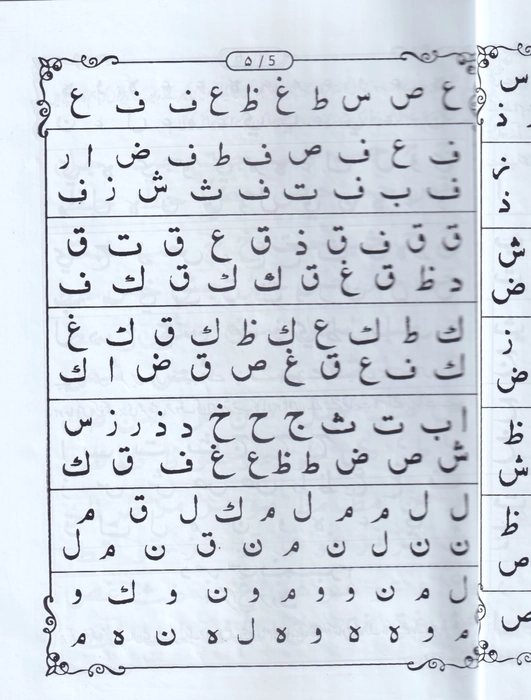 ٥ / 5
ع ص س ط غ ظ ع ف ف ع
ف ع ف ص ف ط ف ض ا ر
ف ب ف ت ف ث ش ز ف
ق ق ف ق ذ ق ع ق ت ق
د ظ ق غ ق ك ك ق ك ف
ك ط ك ع ك ظ ك ق ك غ
ك ف ع ق غ ص ق ض ا ك
ا ب ت ث ج ح خ د ذ ر ز س
ش ص ض ط ظ ع غ ف ق ك
ل ل م م ل م ك ل ق م
ن ن ل ن م ن ق ن م ل
ل م ن و و م و ن و ك و
م و ه ه و ه ل ه ن ه م
س
ذ
ز
ذ
ش
ض
ز
ض
ظ
ش
ظ
ص
ص